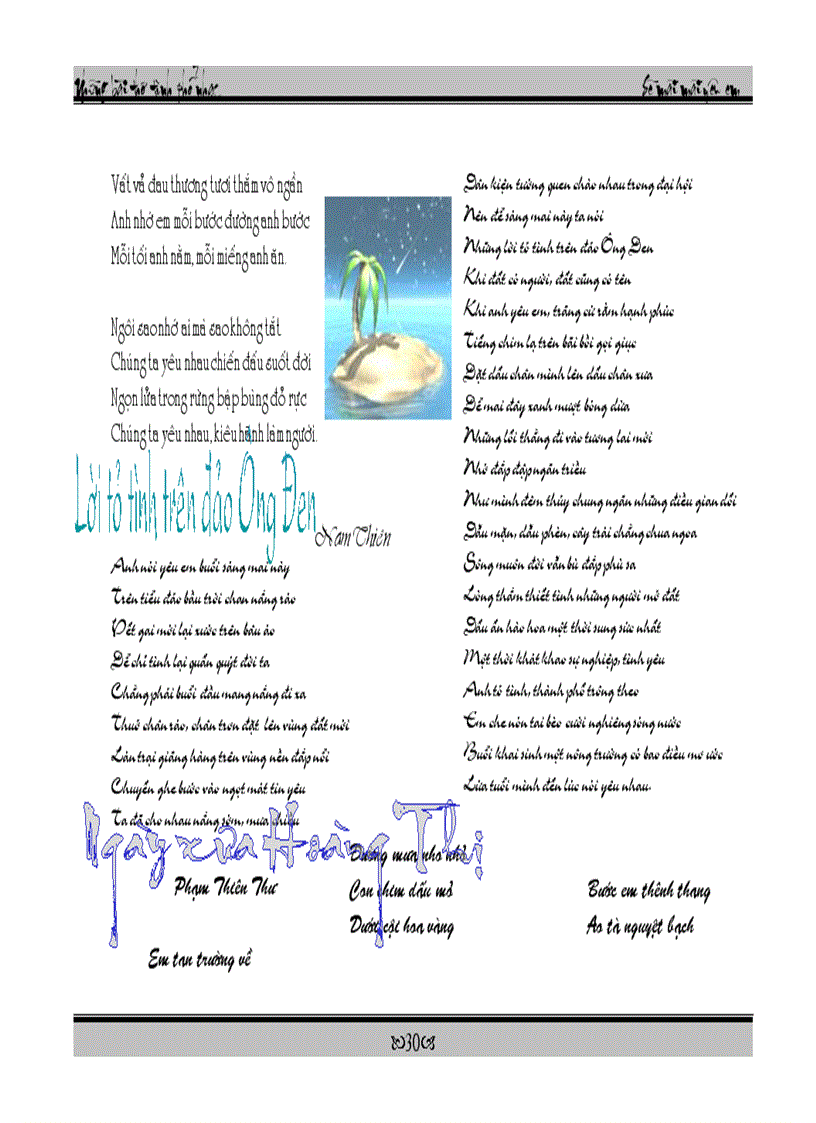 Những bài thơ tình phổ nhạc
Sẽ mãi mãi yêu em
Vất vả đau thương tươi thắm vô ngần
Anh nhớ em mỗi bước đường anh bước
Mỗi tối anh nằm, mỗi miếng anh ăn.
Ngôi sao nhớ ai mà sao không tắt
Chúng ta yêu nhau chiến đấu suốt đời
Ngọn lửa trong rừng bập bùng đỏ rực
Chúng ta yêu nhau, kiêu hãnh làm người.
Lời tỏ tình trên đảo Ông Đen
Nam Thiên
Anh nói yêu em buổi sáng mai này
Trên tiểu đảo bầu trời chan nắng ráo
Vết gai mới lại xước trên bâu áo
Để chỉ tình lại quấn quýt đời ta
Chẳng phải buổi đầu mang nắng đi xa
Thuở chân ráo, chân trơn đặt lên vùng đất mới
Lán trại giăng hàng trên vùng nền đắp nổi
Chuyến ghe bước vào ngọt mát tin yêu
Ta đã cho nhau nắng sớm, mưa chiều
Dấu kiện tướng quen chào nhau trong đại hội
Nên để sáng mai này ta nói
Những lời tỏ tình trên đảo Ông Đen
Khi đất có người, đất cũng có tên
Khi anh yêu em, trăng cứ rằm hạnh phúc
Tiếng chim lạ trên bãi bồi gọi giục
Đặt dấu chân mình lên dấu chân xưa
Để mai đây xanh mượt bóng dừa
Những lối thẳng đi vào tương lai mới
Nhờ đắp đập ngăn triều
Như mình đêm thủy chung ngăn những điều gian dối
Dẫu mặn, dẫu phèn, cây trái chẳng chua ngoa
Sông muôn đời vẫn bù đắp phù sa
Lòng thắm thiết tình những người mở đất
Dấu ấn hào hoa một thời sung sức nhất
Một thời khát khao sự nghiệp, tình yêu
Anh tỏ tình, thành phố trông theo
Em che nón tai bèo cười nghiêng sông nước
Buổi khai sinh một nông trường có bao điều mơ ước
Lứa tuổi mình đến lúc nói yêu nhau.
Ngày xưa Hoàng Thị
Phạm Thiên Thư
Em tan trường về
Đường mưa nho nhỏ
Con chim dấu mỏ
Dưới cội hoa vàng
Bước em thênh thang
Áo tà nguyệt bạch
30